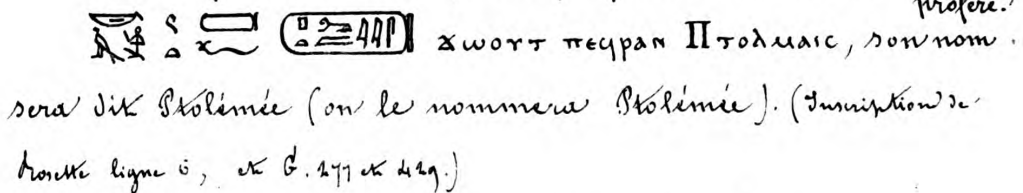 profère.
ϫⲱⲟⲩⲧ ⲡⲉϥⲣⲁⲛ Ⲡⲧⲟⲗⲙⲁⲓⲥ, son nom
sera dit Ptolémée (on le nommera Ptolémée). (Inscription de
Rosette ligne 6, et G. 277 et 429.)